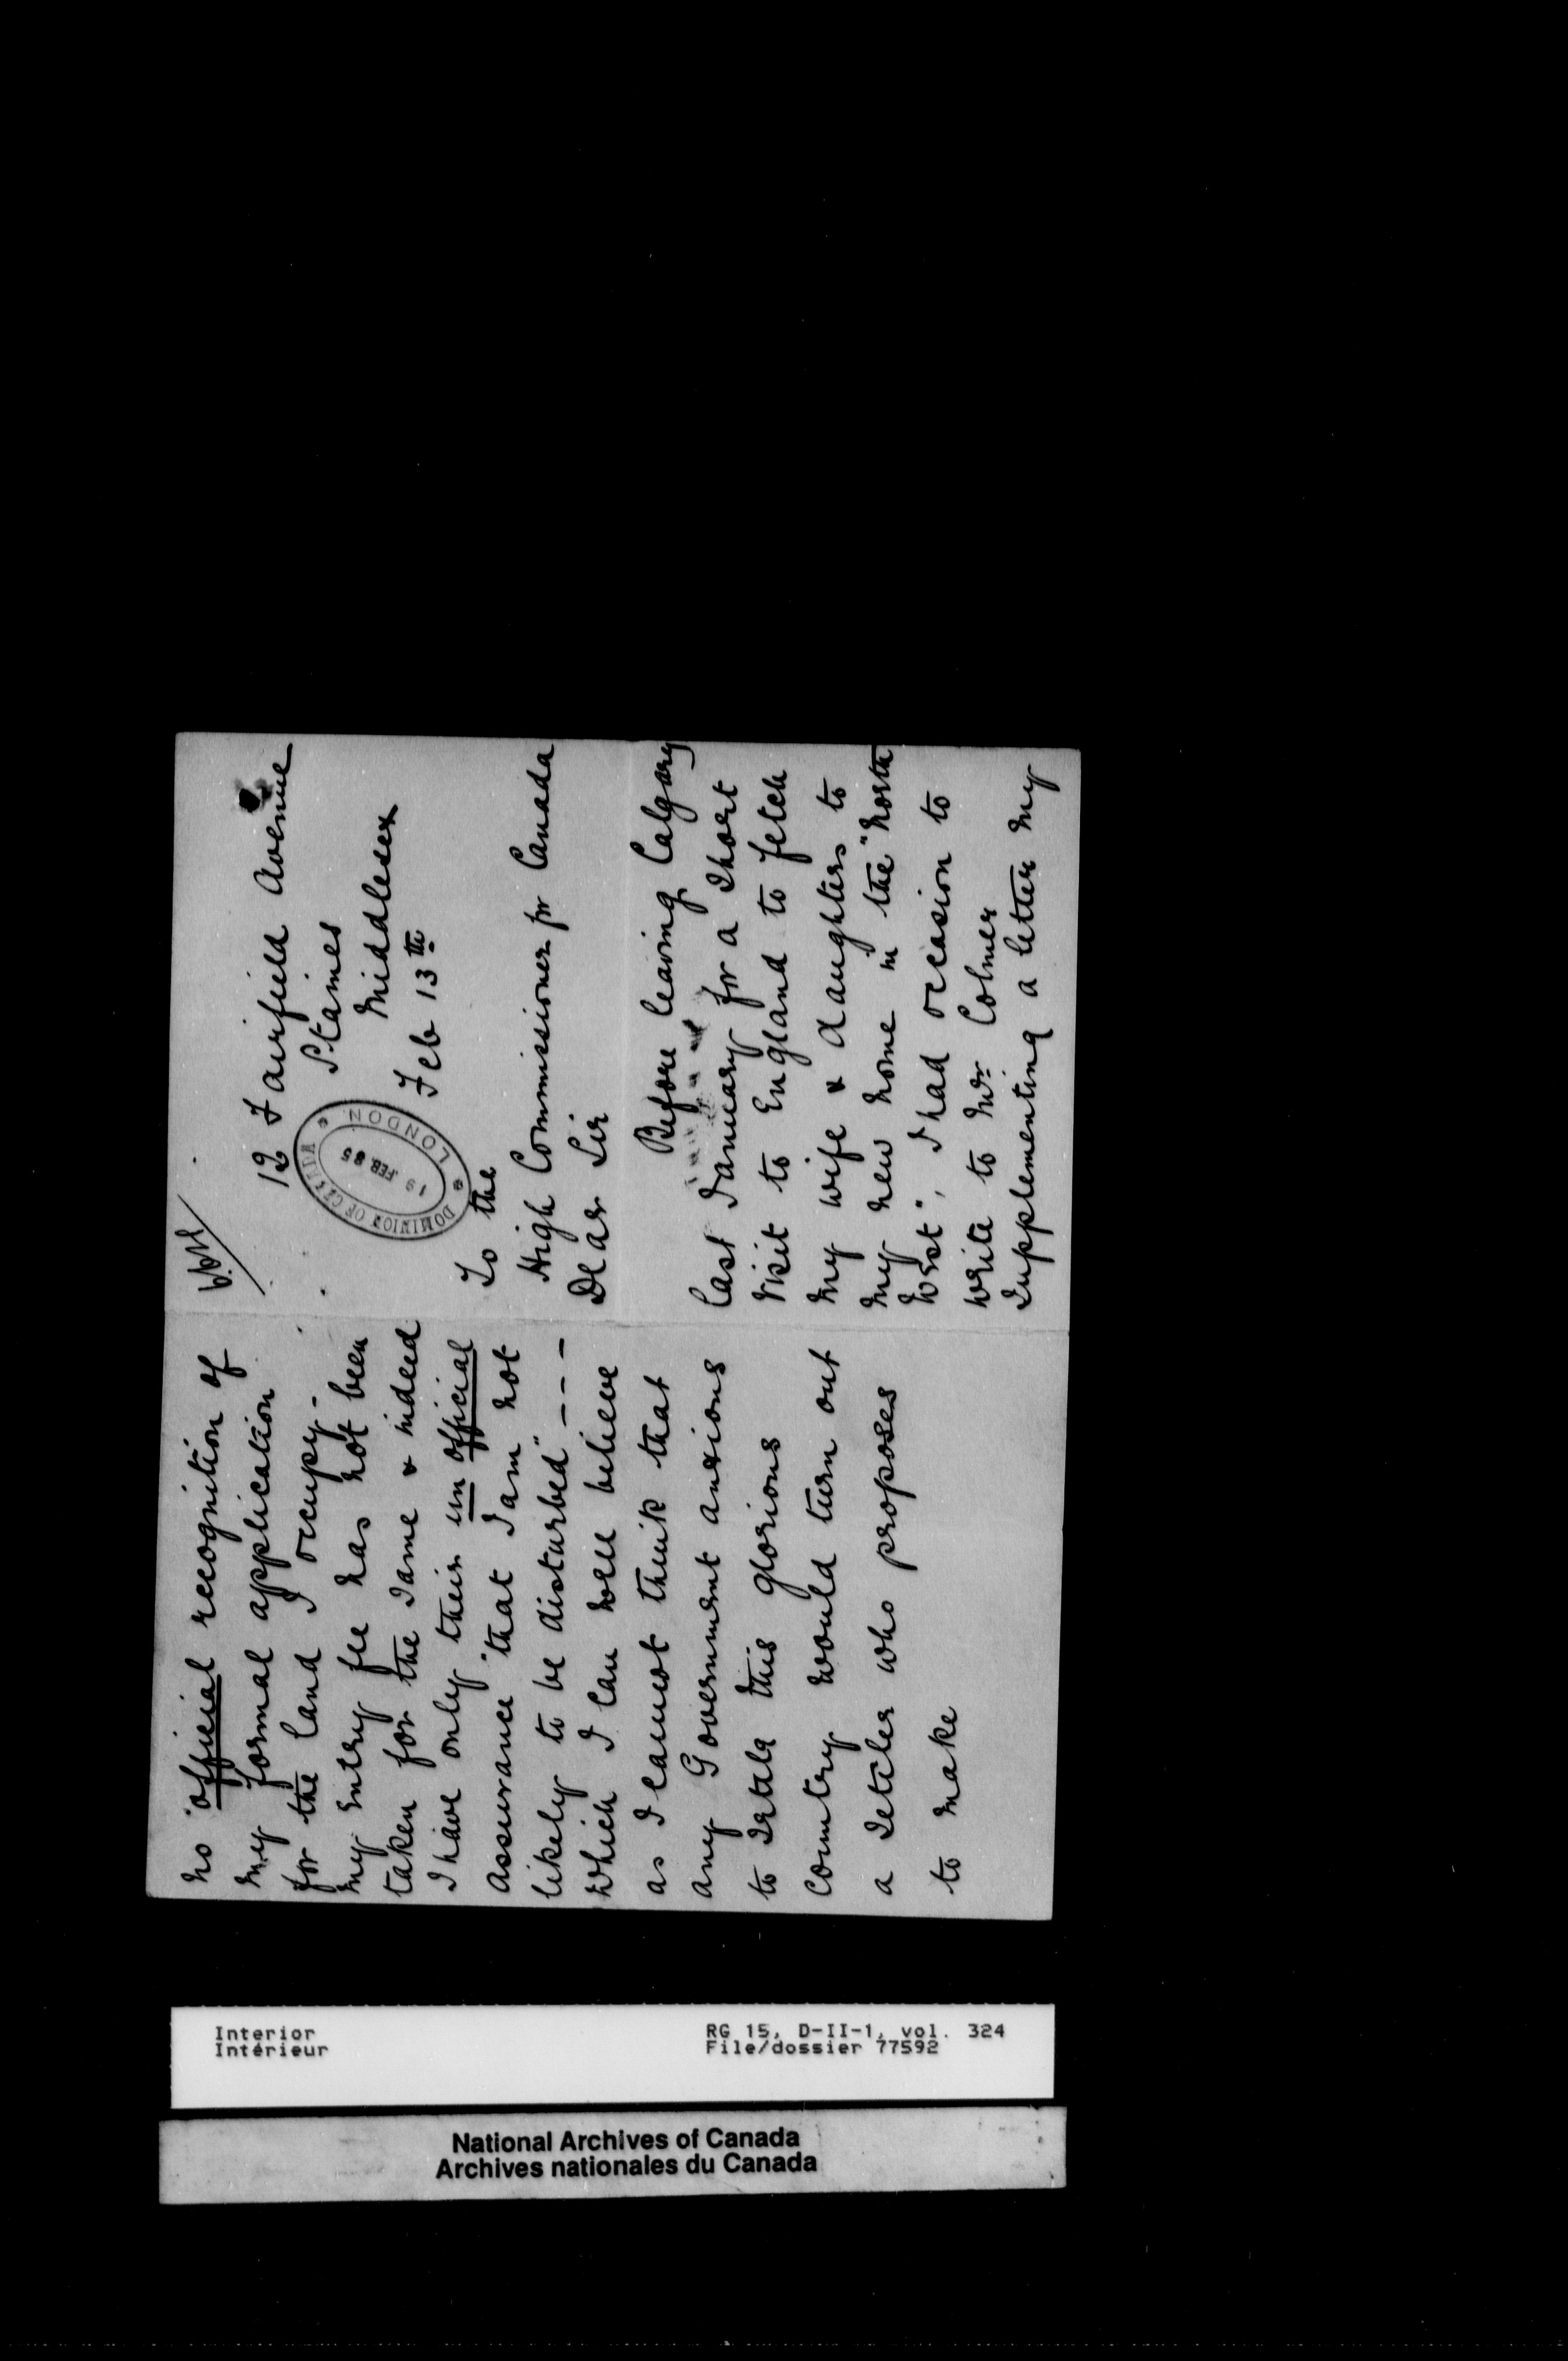 no "official recognition of
my formal application
for the land I occupy -
my entry fee has not been
taken for the same & indeed
I have only their un official
assurance "that I am not
likely to be disturbed" - - -
which I can well believe
as I cannot think that
any Government anxious
to settle this glorious
country would turn out
a settler who proposes
to make
12 Fairfield Avenue
Staines
Middlesex
Feb 13th
DOMINION OF CANADA
LONDON
19 FEB. 85
To the
High Commissioner for Canada
Dear Sir
Before leaving Calgary
last January for a short
visit to England to fetch
my wife & daughters to
my new home in the "North
West", I had occasion to
write to Mr Colmer
supplementing a letter my
Interior
Intérieur
RG 15, D-II-1, vol. 324
File/dossier 77592
National Archives of Canada
Archives nationales du Canada